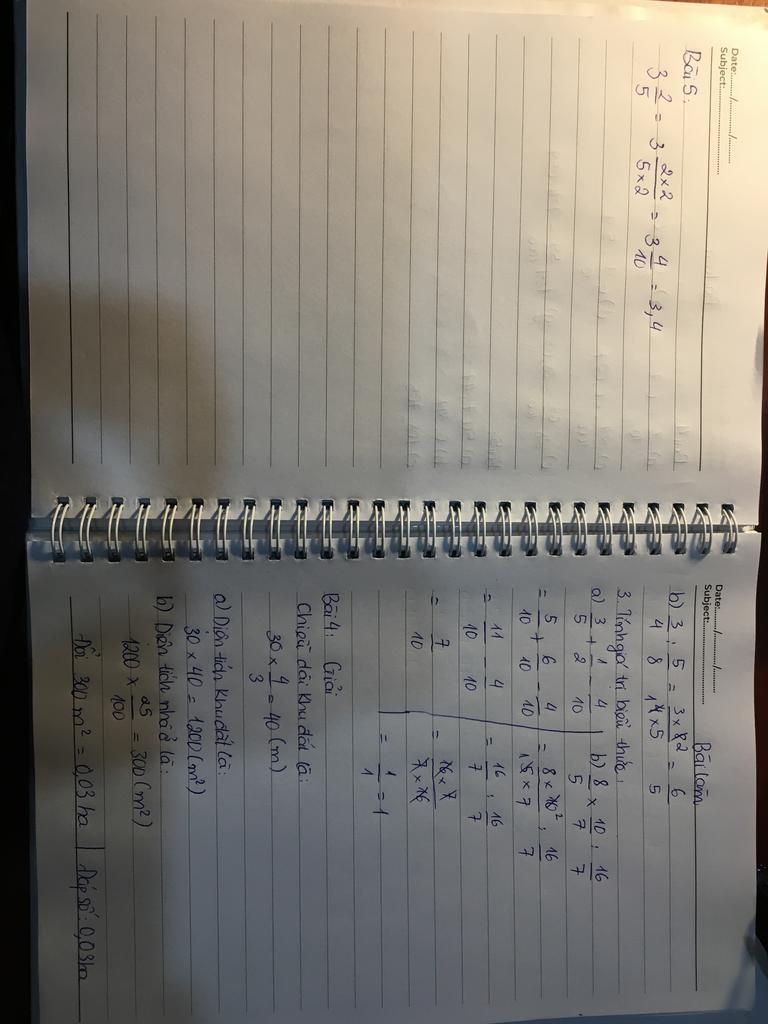 Date:....../....../......
Subject:..................
Bài 5:
3 2/5 = 3 2×2/5×2 = 3 4/10 = 3,4
Date:....../....../......
Subject:..................
Bài làm
b) 3/4 : 5/8 = 3×8 2/1 4×5 = 6/5
3. Tính giá trị biểu thức:
a) 3/5 + 1/2 - 4/10
= 5/10 + 6/10 - 4/10
= 11/10 - 4/10
= 7/10
b) 8/5 × 10/7 : 16/7
= 8×10 2/1 5×7 : 16/7
= 16/7 : 16/7
= 16×7/7×16
= 1/1 = 1
Bài 4: Giải
Chiều dài khu đất là:
30 × 4/3 = 40 (m)
a) Diện tích khu đất là:
30 × 40 = 1200 (m²)
b) Diện tích nhà ở là:
1200 × 25/100 = 300 (m²)
Đổi 300 m² = 0,03 ha | Đáp số: 0,03 ha